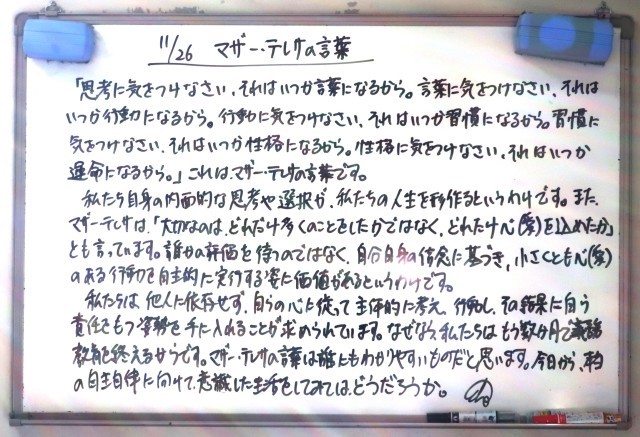 11/26 マザー・テレサの言葉
「思考に気をつけなさい、それはいつか言葉になるから。言葉に気をつけなさい、それは
いつか行動になるから。行動に気をつけなさい、それはいつか習慣になるから。習慣に
気をつけなさい、それはいつか性格になるから。性格に気をつけなさい、それはいつか
運命になるから。」これはマザー・テレサの言葉です。
私たち自身の内面的な思考や選択が、私たちの人生を形作るというわけです。また、
マザーテレサは、「大切なのは、どれだけ多くのことをしたかではなく、どれだけ心(愛)を込めたか」
とも言っています。誰かの評価を待つのではなく、自分自身の信念に基づき、小さくとも心(愛)
のある行動を自主的に実行する姿に価値があるというわけです。
私たちは、他人に依存せず、自らの心に従って主体的に考え、行動し、その結果に自ら
責任をもつ姿勢を手に入れることが求められています。なぜなら、私たちはもう数か月で義務
教育を終えるからです。マザー・テレサの言葉は誰にもわかりやすいものだと思います。今日から、
の自主自律に向けて、意識した生活をしてみては、どうだろうか。